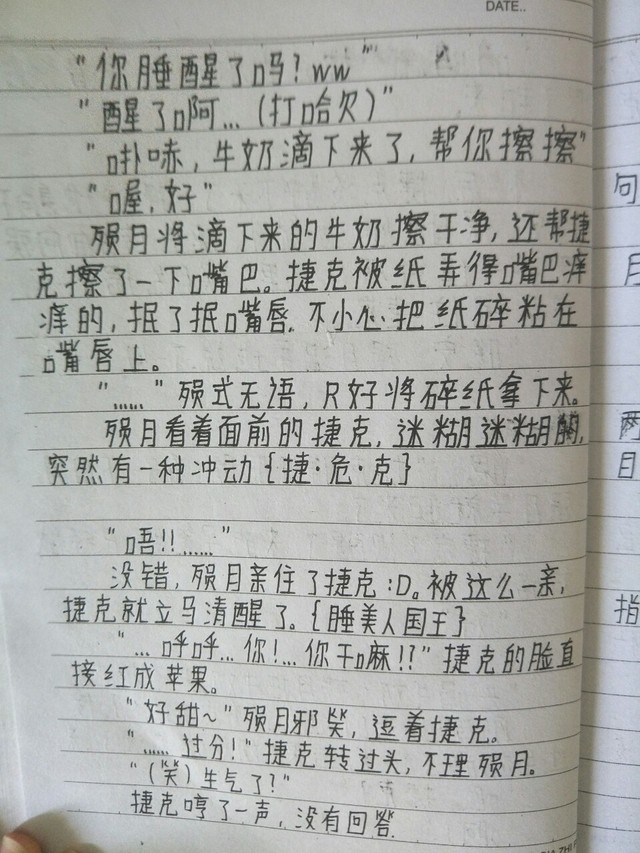 DATE..
"你睡醒了吗?ww"
"醒了啊...(打哈欠)"
"噗哧,牛奶滴下来了,帮你擦擦"
"喔,好"
殒月将滴下来的牛奶擦干净,还帮捷
克擦了一下嘴巴。捷克被纸弄得嘴巴痒
痒的,抿了抿嘴唇.不小心把纸碎粘在
嘴唇上。
"......"殒式无语,只好将碎纸拿下来。
殒月看着面前的捷克,迷糊迷糊
突然有一种冲动{捷·危·克}
"唔!!......"
没错,殒月亲住了捷克:D。被这么一亲,
捷克就立马清醒了。{睡美人国王}
"...呼呼...你!...你干嘛!?"捷克的脸直
接红成苹果。
"好甜~"殒月邪笑,逗着捷克。
"......过分!"捷克转过头,不理殒月。
"(笑)生气了?"
捷克哼了一声,没有回答.
句
月
两
日
指